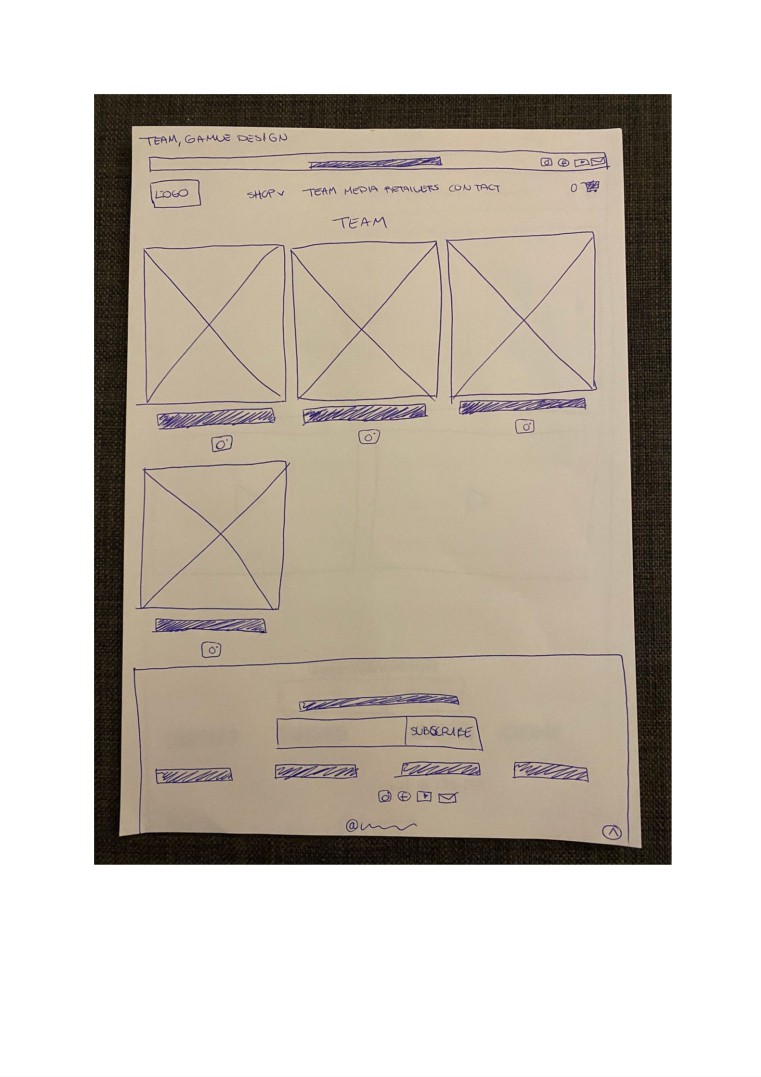 TEAM, GAMLE DESIGN
LOGO
SHOP TEAM MEDIA RETAILERS CONTACT
0
TEAM
SUBSCRIBE
@